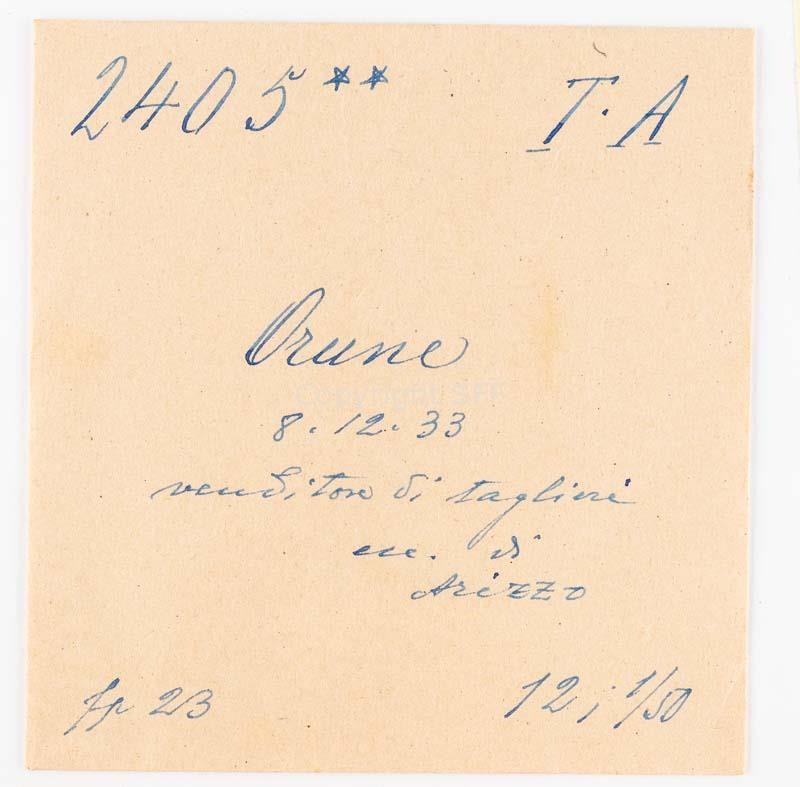 2405** T. A
Orune
Copyright SFF
8.12.33
venditore di taglieri
ecc. di
Arizzo
fp 23 12; 1/50